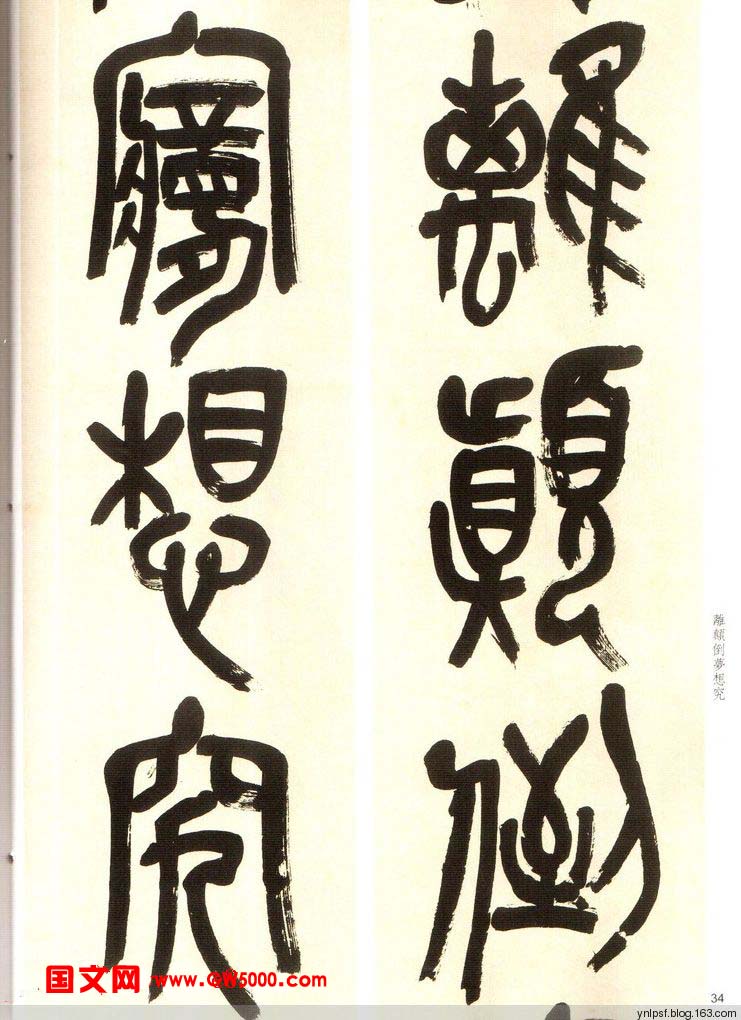 離顛倒
夢想究
離顛倒夢想究
34
国文网 www.GW5000.com
ynlpsf.blog.163.com